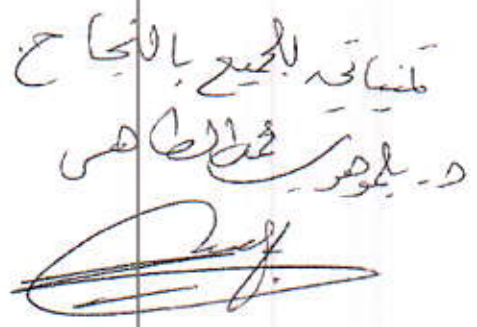 تمنياتي للجميع بالنجاح
د. بلجوهر محمد الطاهر